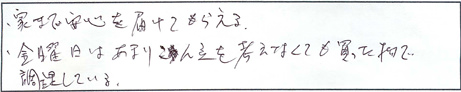 ・家まで安心を届けてもらえる。
・金曜日はあまりこん立を考えなくても買った物で
調理している。